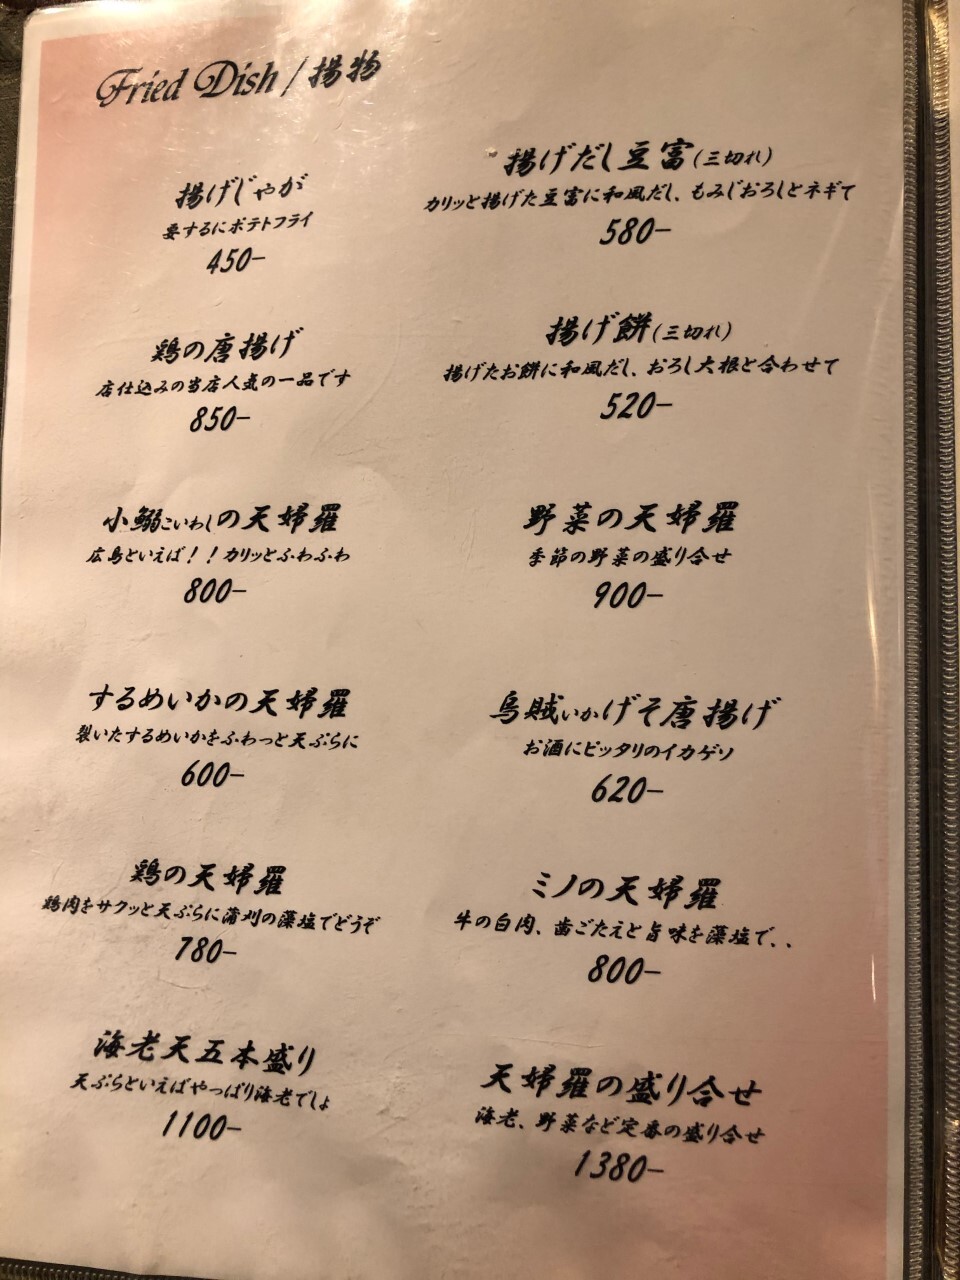 Fried Dish / 揚物
揚げじゃが
要するにポテトフライ
450-
鶏の唐揚げ
店仕込みの当店人気の一品です
850-
小鰯こいわしの天婦羅
広島といえば！！カリッとふわふわ
800-
するめいかの天婦羅
裂いたするめいかをふわっと天ぷらに
600-
鶏の天婦羅
鶏肉をサクッと天ぷらに蒲刈の藻塩でどうぞ
780-
海老天五本盛り
天ぷらといえばやっぱり海老でしょ
1100-
揚げだし豆富(三切れ)
カリッと揚げた豆富に和風だし、もみじおろしとネギて
580-
揚げ餅(三切れ)
揚げたお餅に和風だし、おろし大根と合わせて
520-
野菜の天婦羅
季節の野菜の盛り合せ
900-
烏賊いかげそ唐揚げ
お酒にピッタリのイカゲソ
620-
ミノの天婦羅
牛の白肉、歯ごたえと旨味を藻塩で、、
800-
天婦羅の盛り合せ
海老、野菜など定番の盛り合せ
1380-